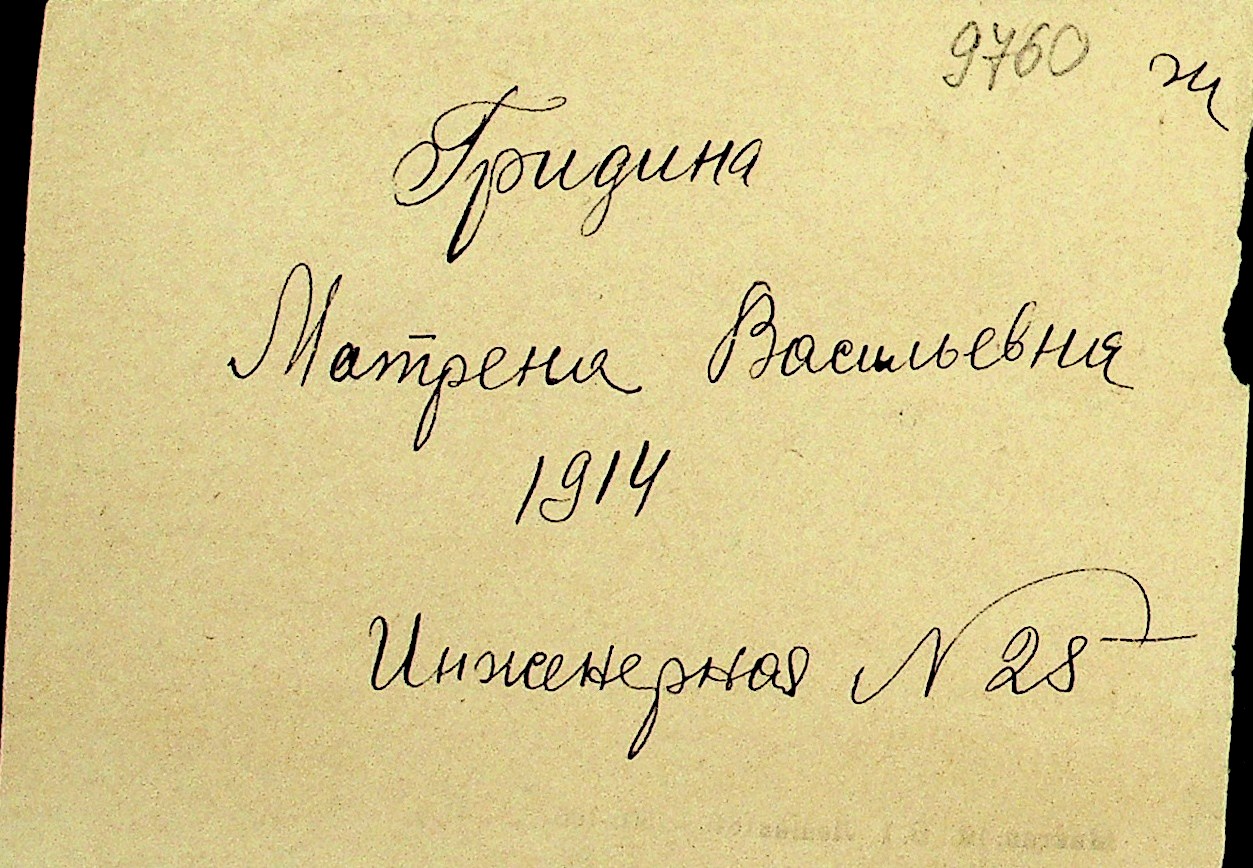 9760 ж
Гридина
Матрена Васильевна
1914
Инженерная N 28